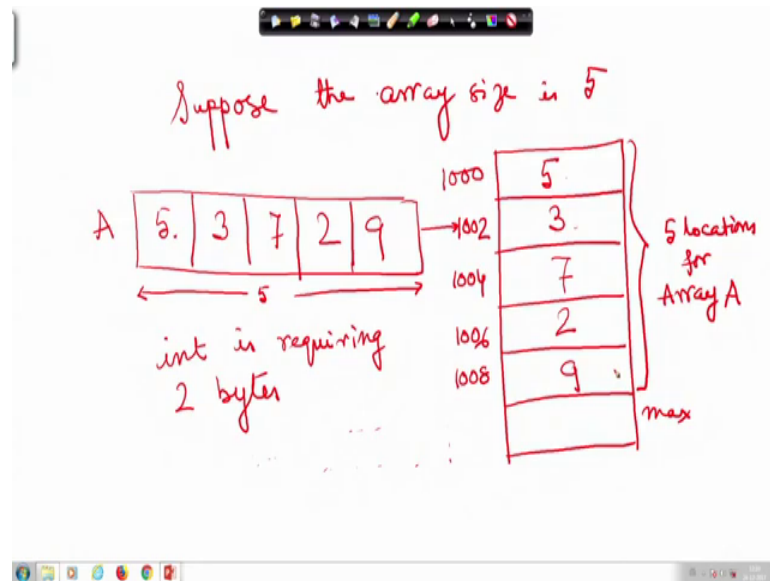 Suppose the array size is 5
A 5. 3 7 2 9
5
int is requiring
2 bytes
1000 5.
1002 3.
1004 7
1006 2
1008 9
max
5 locations
for
Array A